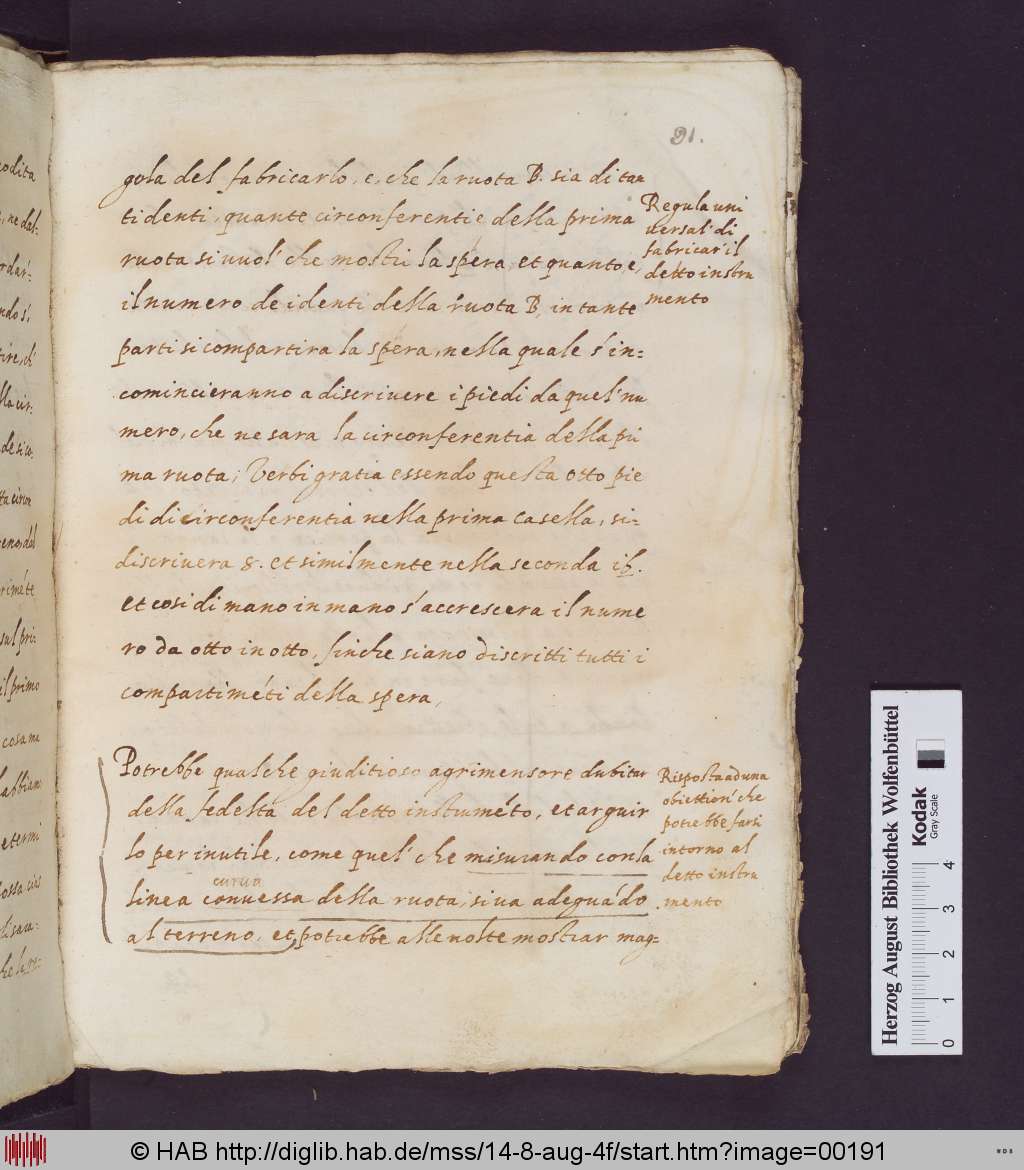 91.
gola del fabricarlo, e, che la ruota B. sia di tan
ti denti, quante circonferentie della prima
ruota si vuol' che mostri la spera, et quanto e,
il numero de i denti della ruota B, in tante
parti si compartira la spera, nella quale s'in=
comincieranno a discrivere i piedi da quel' nu
mero, che ne sara la circonferentia della pri
ma ruota; Verbi gratia essendo questa otto pie
di di circonferentia nella prima casella, si=
discrivera 8. et similmente nella seconda 16.
et cosi di mano in mano s'accrescera il nume
ro da otto in otto, finche siano discritti tutti i
compartiméti della spera,
Regula uni
versal' di
fabricar' il
detto instru
mento
Potrebbe qualche giuditioso agrimensore dubitar
della fedelta del detto instrumėto, et arguir
lo per inutile, come quel' che misurando con la
curva
linea convessa della ruota, si va adeguádo
al terreno, et potrebbe alle volte mostrar mag=
Risposta ad una
obiettion' che
potrebbe farsi
intorno al
detto instru
mento
odita
, ne dal-
rdar'-
ndo s',
tire, ch'
lla cir:
de si co:
tta circon
eno, dal
riméte
sul pri-
il primo
cosa ma
abbiamo
et ermi
Herzog August Bibliothek Wolfenbüttel
Kodak
Gray Scale
0 1 2 3 4
© HAB http://diglib.hab.de/mss/14-8-aug-4f/start.htm?image=00191